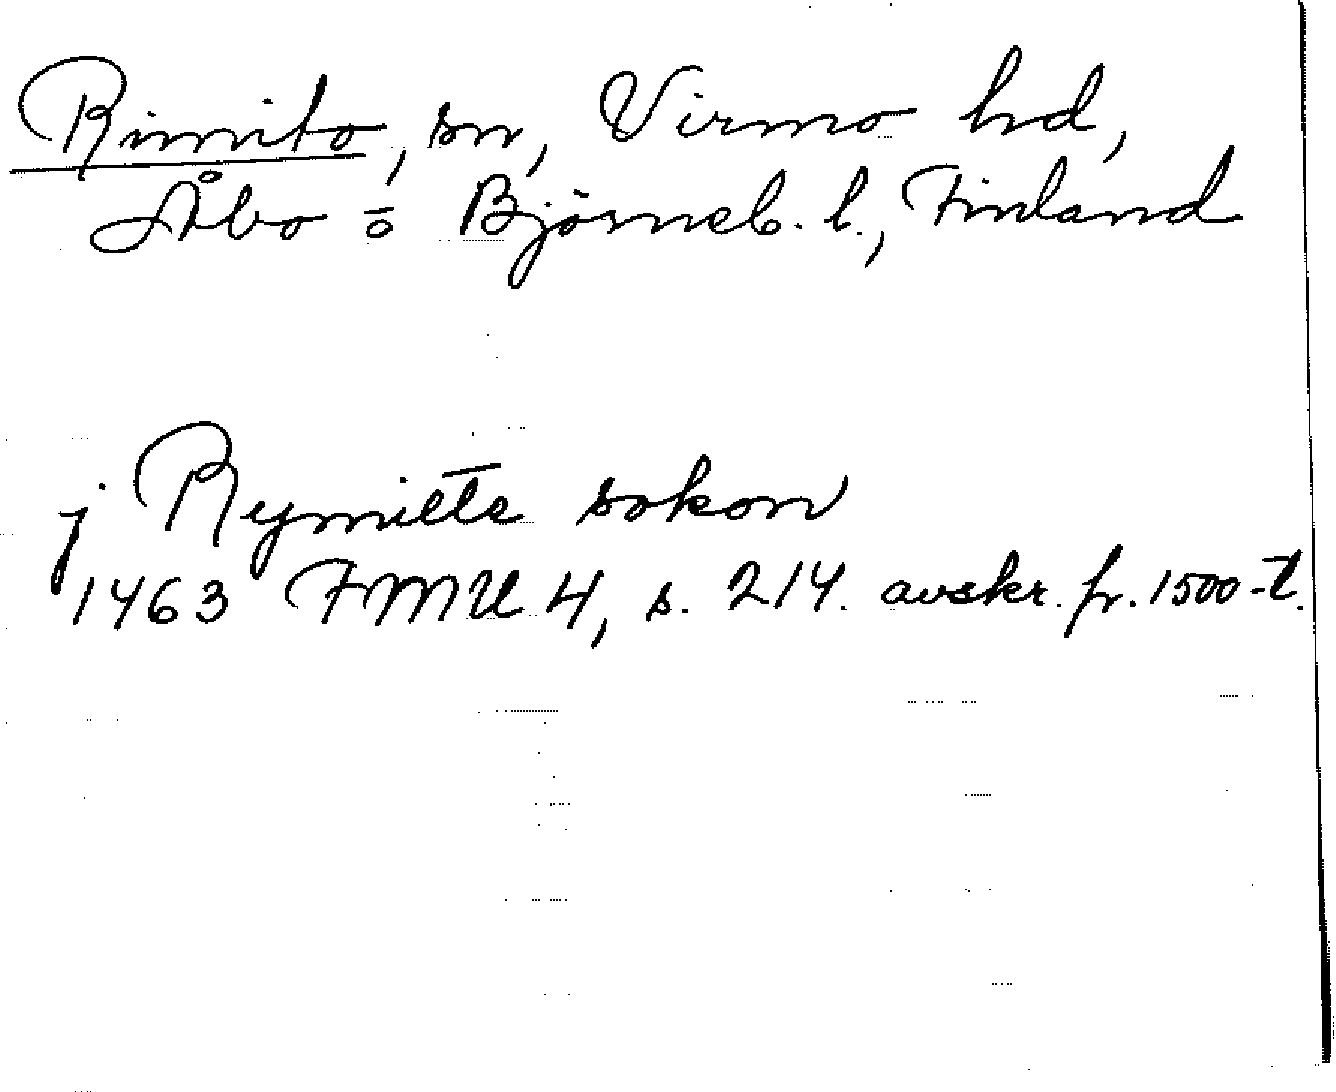 Rimito, sn, Virmo hd,
Åbo o Björneb. l., Finland
j Rymitte sokon
1463 FMU 4, s. 214. avskr. fr. 1500-t.